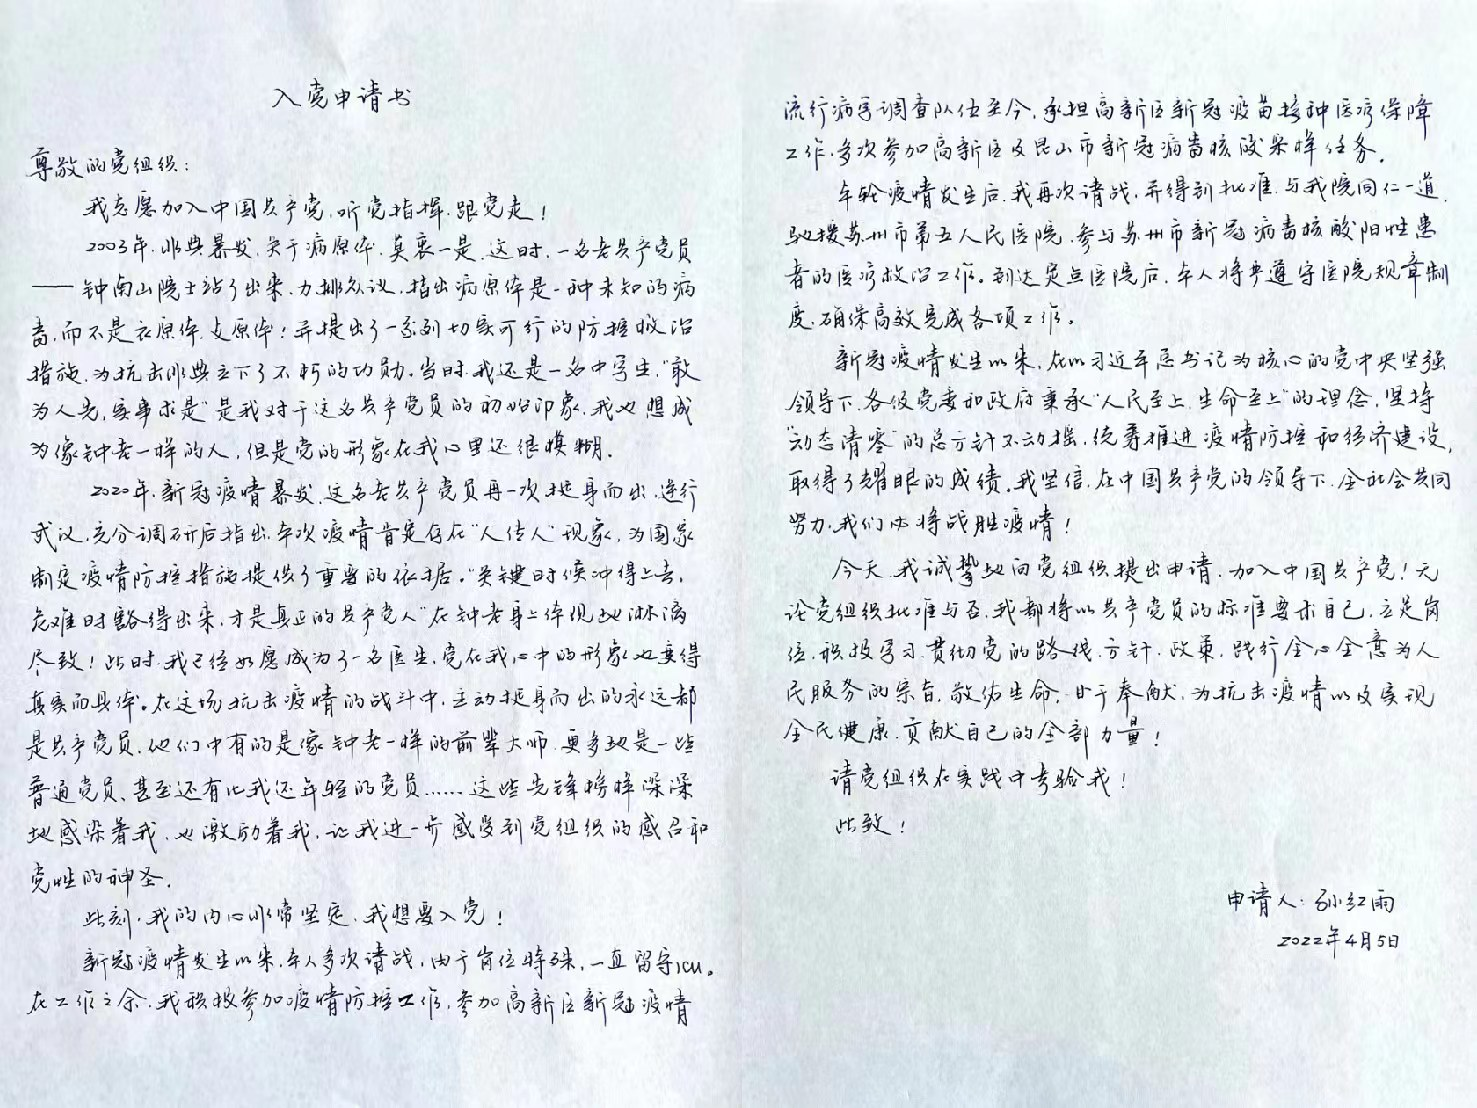 入党申请书
尊敬的党组织：
我志愿加入中国共产党，听党指挥，跟党走！
2003年，非典暴发，关于病原体，莫衷一是，这时，一名老共产党员
——钟南山院士站了出来，力排众议，指出病原体是一种未知的病
毒，而不是衣原体、支原体！并提出了一系列切实可行的防控救治
措施，为抗击非典立下了不朽的功勋，当时，我还是一名中学生，“敢
为人先，实事求是”是我对于这名共产党员的初始印象，我也想成
为像钟老一样的人，但是党的形象在我心里还很模糊。
2020年，新冠疫情暴发，这名老共产党员再一次挺身而出，逆行
武汉，充分调研后指出，本次疫情肯定存在“人传人”现象，为国家
制定疫情防控措施提供了重要的依据。“关键时候冲得上去，
危难时豁得出来，才是真正的共产党人”在钟老身上体现地淋漓
尽致！此时，我已经如愿成为了一名医生，党在我心中的形象也变得
真实而具体。在这场抗击疫情的战斗中，主动挺身而出的永远都
是共产党员，他们中有的是像钟老一样的前辈大师，更多地是一些
普通党员、甚至还有比我还年轻的党员……这些先锋榜样深深
地感染着我，也激励着我，让我进一步感受到党组织的感召和
党性的神圣。
此刻，我的内心非常坚定，我想要入党！
新冠疫情发生以来，本人多次请战，由于岗位特殊，一直留守ICU。
在工作之余，我积极参加疫情防控工作，参加高新区新冠疫情
流行病学调查队伍至今，承担高新区新冠疫苗接种医疗保障
工作，多次参加高新区及昆山市新冠病毒核酸采样任务。
本轮疫情发生后，我再次请战，并得到批准，与我院同仁一道，
驰援苏州市第五人民医院，参与苏州市新冠病毒核酸阳性患
者的医疗救治工作。到达定点医院后，本人将步遵守医院规章制
度，确保高效完成各项工作。
新冠疫情发生以来，在以习近平总书记为核心的党中央坚强
领导下，各级党委和政府秉承“人民至上，生命至上”的理念，坚持
“动态清零”的总方针不动摇，统筹推进疫情防控和经济建设，
取得了耀眼的成绩。我坚信，在中国共产党的领导下，全社会共同
努力，我们必将战胜疫情！
今天，我诚挚地向党组织提出申请，加入中国共产党！无
论党组织批准与否，我都将以共产党员的标准要求自己，立足岗
位，积极学习，贯彻党的路线、方针、政策，践行全心全意为人
民服务的宗旨，敬佑生命，甘于奉献，为抗击疫情以及实现
全民健康，贡献自己的全部力量！
请党组织在实践中考验我！
此致！
申请人：孙红雨
2022年4月5日